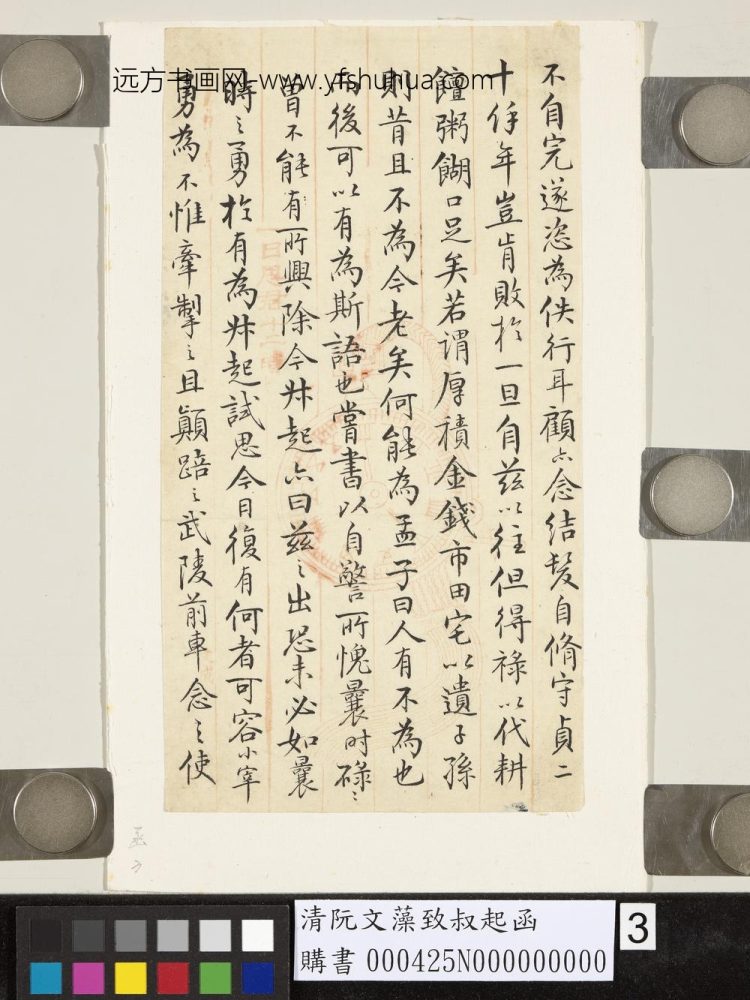 远方书画网-www.yfshuhua.com
不自完遂恣為佚行耳顧亦念结髮自脩守貞二
十余年豈肯敗於一旦自兹以往但得禄以代耕
饘粥餬口足矣若谓厚積金錢市田宅以遺子孫
則昔且不為今老矣何能為孟子曰人有不為也
而後可以有為斯語也嘗書以自警所愧曩时碌〻
曽不能有所興除今叔起亦曰兹之出恐未必如曩
時之勇於有為叔起試思今日復有何者可容小宰
勇為不惟牽掣之且顛踣之武陵前車念之使
清阮文藻致叔起函
購書 000425N000000000
3